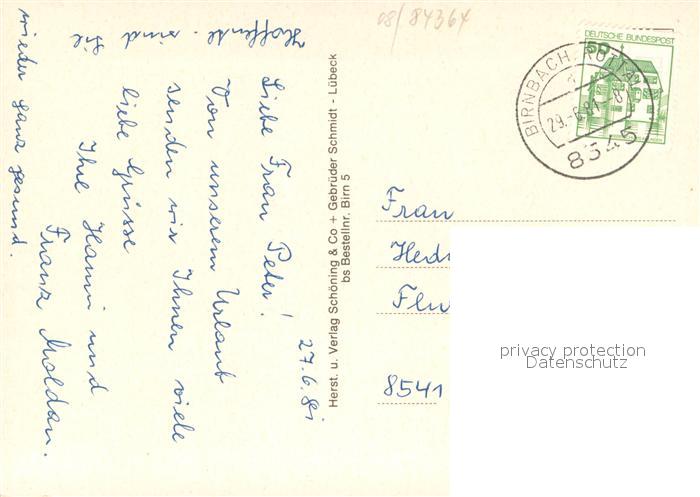 27.6.81
Liebe Frau Peter!
Von unserem Urlaub
senden wir Ihnen viele
liebe Grüsse
Ihre Hanni und
Franz Moldan.
Hoffentl. sind Sie
wieder ganz gesund.
Herst. u. Verlag Schöning & Co + Gebrüder Schmidt - Lübeck
bs Bestellnr. Birn 5
08/84364
DEUTSCHE BUNDESPOST
50
BIRNBACH, ROTTAL
29.-6.81.-8
8345
Frau
Hed
Flu
8541
privacy protection
Datenschutz